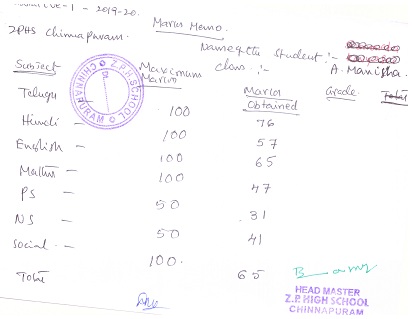 - 2019-20.
Marks Memo.
ZPHS Chinnapuram.
Name of the Student :-
A. Manisha
Class :-
Subject Maximum Marks Marks Obtained Grade Total
Z.P.H. SCHOOL CHINNAPURAM
Telugu - 100 76
Hindi - 100 57
English - 100 65
Maths - 100 47
PS - 50 31
NS - 50 41
Social - 100. 65
Total
HEAD MASTER
Z.P. HIGH SCHOOL
CHINNAPURAM